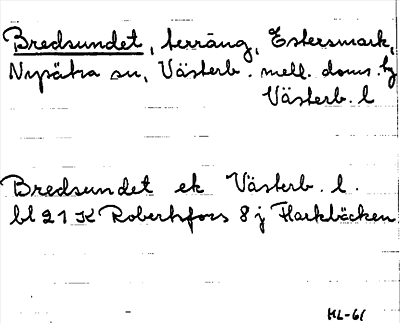 Bredsundet, terräng, Estersmark,
Nysätra sn, Västerb. mell. doms. hg
Västerb. l
Bredsundet ek Västerb. l.
bl 21 K Robertsfors 8 j Flarkbäcken
HL-61